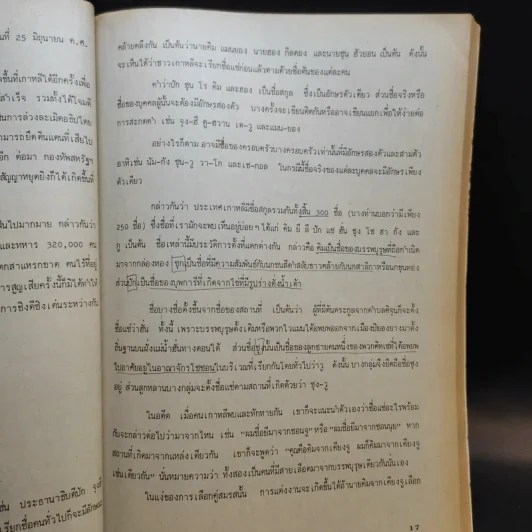 นที่ 25 มิถุนายน ค.ศ.
จขึ้นที่เกาหลีใต้อีกครั้งเพื่อ
สำเร็จ รวมทั้งได้โจมตี
เป็นการล่วงละเมิดอธิปไตย
ามารถยึดดินแดนที่เสียไป
อีก ต่อมา กองทัพสหรัฐฯ
สัญญาหยุดยิงก็ได้เกิดขึ้นที่
ป็นไปมากมาย กล่าวกันว่า
และทหาร 320,000 คน
ตกสาแหรกขาด คนไร้ที่อยู่
ารสูญเสียครั้งนี้ก็มิได้ทำให้
การชิงดีชิงเด่นระหว่างกัน
ช่น ประธานาธิบดีปัก จุงฮี
เรียกชื่อคนทั่วไปก็จะมีลักษณะ
คล้ายคลึงกัน เป็นต้นว่านายคิม แมนยอง นายฮอง กิลดอง และนายชุน ฮัวยอน เป็นต้น ดังนั้น
จะเห็นได้ว่าชาวเกาหลีจะเรียกชื่อแซ่ก่อนแล้วตามด้วยชื่อต้นของแต่ละคน
คำว่าปัก ชุน โร คิม และฮอง เป็นชื่อสกุล ซึ่งเป็นอักษรตัวเดียว ส่วนชื่อจริงหรือ
ชื่อของบุคคลผู้นั้นจะต้องมีอักษรสองตัว บางครั้งจะเขียนติดกันหรืออาจเขียนแยกเพื่อให้ง่ายต่อ
การสะกดคำ เช่น จุง-ฮี ดู-ฮวาน เต-วู และแมน-ยอง
อย่างไรก็ตาม อาจมีชื่อของครอบครัวบางครอบครัวเท่านั้นที่มีอักษรสองตัวและสามตัว
อาทิเช่น นัม-กัง ชุน-วู วา-โก และเช-กอล ในกรณีนี้ชื่อจริงของแต่ละบุคคลจะมีอักษรเพียง
ตัวเดียว
กล่าวกันว่า ประเทศเกาหลีมีชื่อสกุลรวมกันทั้งสิ้น 300 ชื่อ (บางท่านบอกว่ามีเพียง
250 ชื่อ) ซึ่งชื่อที่เรามักจะพบเห็นอยู่บ่อยๆ ได้แก่ คิม ยี ลี ปัก แช ฮัน ชุง โช ฮา กัง และ
กู เป็นต้น ชื่อเหล่านี้มีประวัติการตั้งที่แตกต่างกัน กล่าวคือ คิมเป็นชื่อของบรรพบุรุษที่ถือกำเนิด
มาจากกล่องทอง ซุกเป็นชื่อที่มีความสัมพันธ์กับนกชนสีดำสลับขาวคล้ายกับนกสาลิกาหรือนกขุนทอง
ส่วนปักเป็นชื่อของบุพการีที่เกิดจากไข่ที่มีรูปร่างดังน้ำเต้า
ชื่อบางชื่อตั้งขึ้นจากชื่อของสถานที่ เป็นต้นว่า ผู้ที่มีต้นตระกูลจากตำบลคิรุนก็จะตั้ง
ชื่อแซ่ว่าฮัน ทั้งนี้ เพราะบรรพบุรุษดั้งเดิมหรือพวกโวแมนได้อพยพออกจากเมืองปยองยางมาตั้ง
ถิ่นฐานบนฝั่งแม่น้ำฮันทางตอนใต้ ส่วนชื่อชุงนั้นเป็นชื่อของลูกชายคนหนึ่งของพวกคิทเซที่ได้อพยพ
ไปอาศัยอยู่ในอาณาจักรโชซอนในบริเวณที่เรียกกันโดยทั่วไปว่าวู ดังนั้น บางกลุ่มจึงยึดถือชื่อชุง
อยู่ ส่วนลูกหลานบางกลุ่มจะตั้งชื่อแซ่ตามสถานที่เกิดด้วยว่า ชุง-วู
ในอดีต เมื่อคนเกาหลีพบและทักทายกัน เขาก็จะแนะนำตัวเองว่าชื่อแซ่อะไรพร้อม
กับจะกล่าวต่อไปว่ามาจากไหน เช่น "ผมชื่อยีมาจากชอนจู" หรือ "ผมชื่อยีมาจากชอนยุย" หาก
สถานที่เกิดมาจากแหล่งเดียวกัน เขาก็จะพูดว่า "คุณคือคิมจากเคียงจู ผมก็คิมมาจากเคียงจู
เช่นเดียวกัน" นั่นหมายความว่า ทั้งสองเป็นคนที่มีสายเลือดมาจากบรรพบุรุษเดียวกันนั่นเอง
ในแง่ของการเลือกคู่สมรสนั้น การแต่งงานจะเกิดขึ้นได้ถ้านายคิมจากเคียงจูเลือก
17